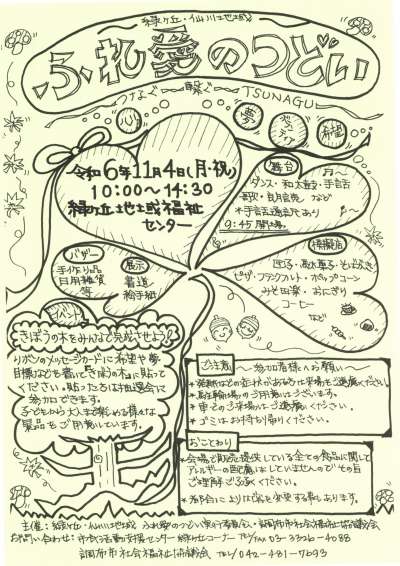 緑ヶ丘・仙川地域
ふれ愛のつどい
つなぐ 〜繋ぐ〜 TSUNAGU
心
夢
希望
令和6年11月4日(月・祝)
10:00〜14:30
緑ヶ丘地域福祉
センター
舞台
ダンス・和太鼓・手話
歌・
など
*手話通訳あり
9:45開場
模擬店
団子・焼きそば
ピザ・フランクフルト・ポップコーン
みそ田楽・おにぎり
コーヒー
など
バザー
手作り品
日用雑貨
等
展示
書道
絵手紙
イベント
きぼうの木をみんなで完成させよう!
リボンのメッセージカードに希望や夢
目標などを書いてきぼうの木に貼って
ください。貼った方は抽選会に
参加できます。
子どもから大人まで楽しめる様々な
景品をご用意しています。
ご注意 〜参加者様へお願い〜
*発熱などの症状がある方は来場をご遠慮ください。
*駐輪場のご用意はございます。
*車でのご来場はご遠慮ください。
*ゴミはお持ち帰りください。
おことわり
*会場で販売・提供している全ての食品に関して
アレルギーの配慮はしていませんのでその旨
ご理解ご了承ください。
*都合により内容を変更する事もあります。
主催:緑ヶ丘・仙川地域 ふれ愛のつどい実行委員会・調布市社会福祉協議会
お問い合わせ:市民活動支援センター緑ヶ丘コーナー TEL/FAX 03-3326-4088
調布市社会福祉協議会 TEL 042-481-7693